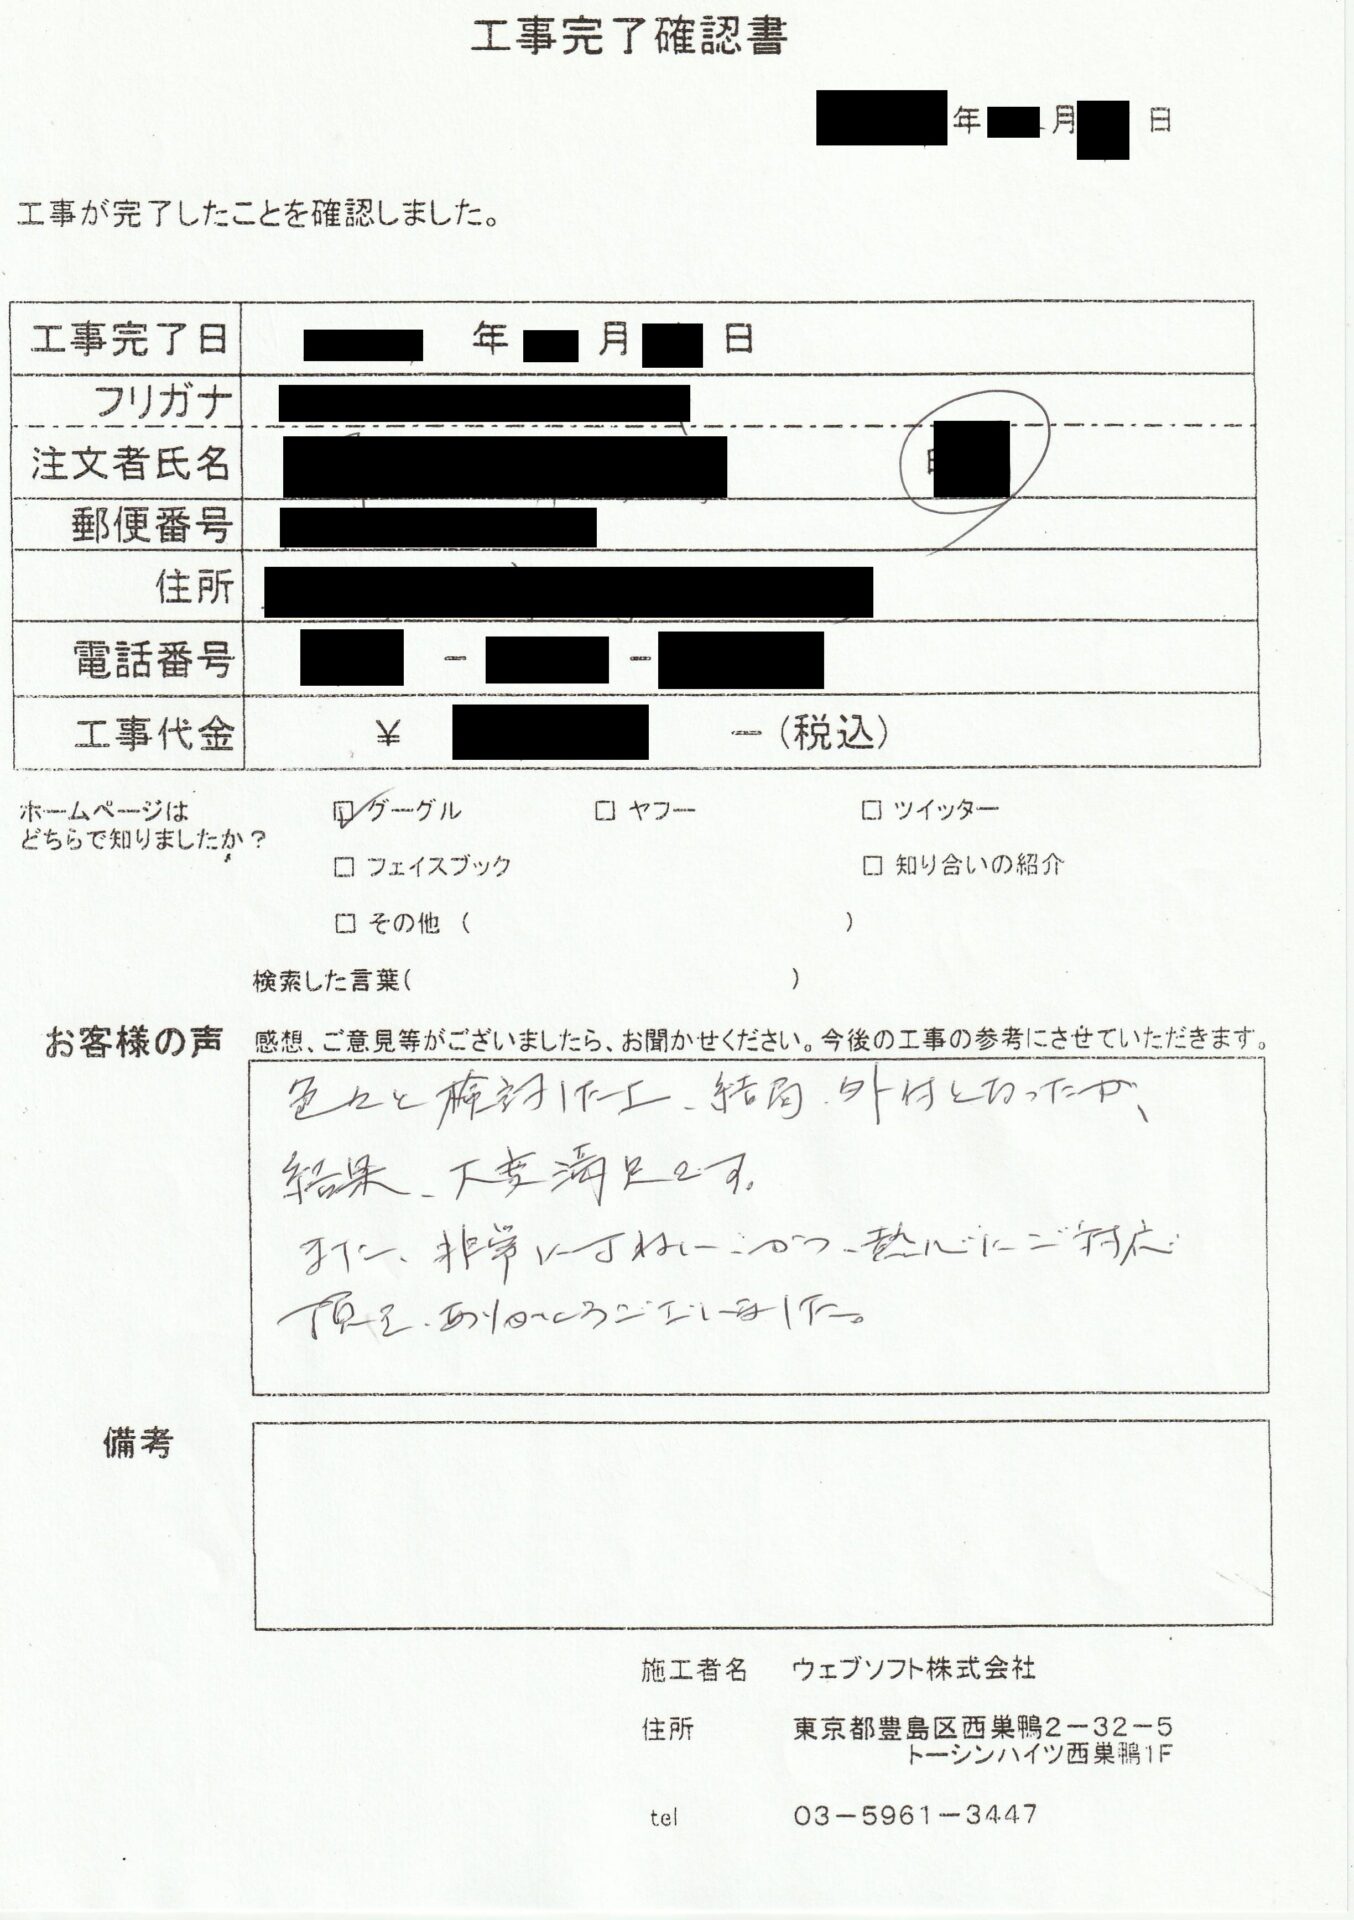 工事完了確認書
年 月 日
工事が完了したことを確認しました。
工事完了日 年 月 日
フリガナ
注文者氏名
郵便番号
住所
電話番号 － －
工事代金 ￥ －（税込）
ホームページは
どちらで知りましたか？
☑ グーグル □ ヤフー □ ツイッター
□ フェイスブック □ 知り合いの紹介
□ その他 （ ）
検索した言葉（ ）
お客様の声 感想、ご意見等がございましたら、お聞かせください。今後の工事の参考にさせていただきます。
色々と検討した上、結局、外付となったが、
結果、大変満足です。
また、非常にていねいにかつ、熱心にご対応
頂き、ありがとうございました。
備考
施工者名 ウェブソフト株式会社
住所 東京都豊島区西巣鴨２－３２－５
トーシンハイツ西巣鴨１Ｆ
tel ０３－５９６１－３４４７